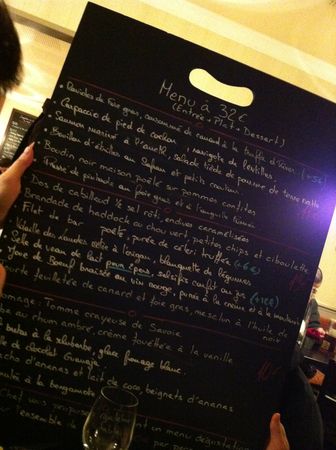 Menu à 32€
(Entrée + Plat + Dessert)
Ravioles de foie gras, consommé de canard à la truffe d'hiver (+5€)
Carpaccio de pied de cochon, ravigote de lentilles
Saumon mariné à l'aneth, salade tiède de pomme de terre ratte
Bouillon d'étrilles au safran et petits croûtons
Boudin noir maison poêlé sur pommes confites
de pintade au foie gras et à l'
Dos de cabillaud 1/2 sel rôti, endives caramélisées
Brandade de haddock au chou vert, petites chips et ciboulette
Filet de bar poêlé, purée de céleri truffée (+6€)
Volaille des Landes rôtie à l'origan, blanquette de légumes
Selle de veau de lait pour 2 pers, salsifis confit au jus (+10€)
Joue de Boeuf braisée au vin rouge, purée à la crème et à la
tourte feuilletée de canard et foie gras, mesclun à l'huile de noix
fromage: Tomme crayeuse de Savoie
ba au rhum ambré, crème fouettée à la vanille
à la rhubarbe, glace fromage blanc
de chocolat Guanaja
d'ananas et lait de coco, beignets d'ananas
à la bergamote
Chef vous propose un menu dégustation
l'ensemble